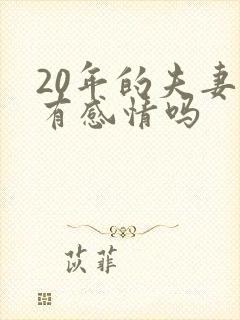 20年的夫妻
有感情吗
苡菲